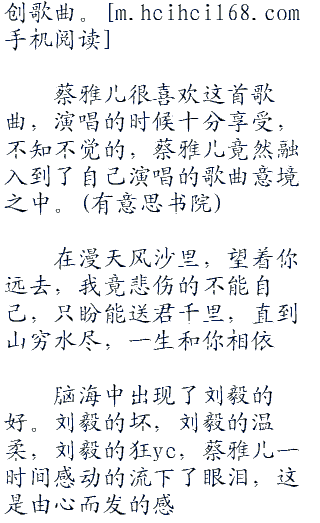 创歌曲。[m.hcihcil68.com
手机阅读]
蔡雅儿很喜欢这首歌
曲，演唱的时候十分享受，
不知不觉的，蔡雅儿竟然融
入到了自己演唱的歌曲意境
之中。(有意思书院)
在漫天风沙里，望着你
远去，我竟悲伤的不能自
己，只盼能送君千里，直到
山穷水尽，一生和你相依
脑海中出现了刘毅的
好。刘毅的坏，刘毅的温
柔，刘毅的狂yc，蔡雅儿一
时间感动的流下了眼泪，这
是由心而发的感